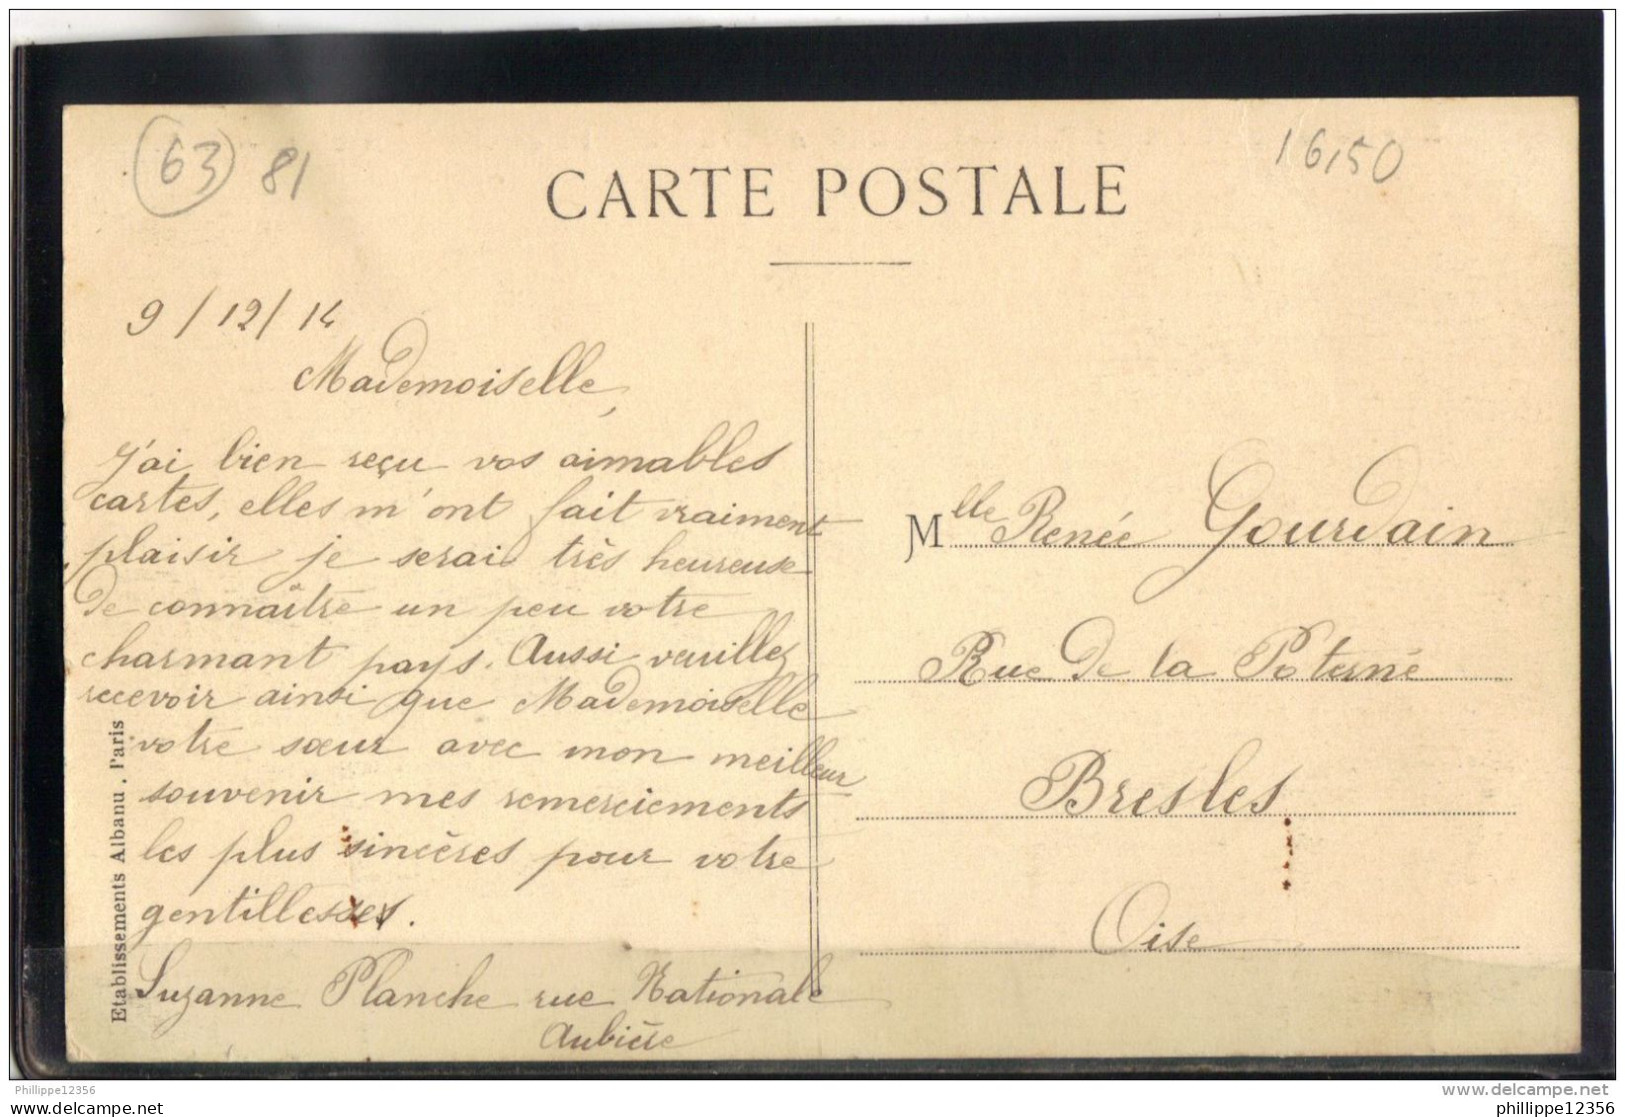 63 81
16,50
CARTE POSTALE
9/12/14
Mademoiselle,
J'ai bien reçu vos aimables
cartes, elles m'ont fait vraiment
plaisir je serai très heureuse
de connaître un peu votre
charmant pays. Aussi veuillez
recevoir ainsi que Mademoiselle
votre sœur avec mon meilleur
souvenir mes remerciements
les plus sincères pour votre
gentillesses.
Suzanne Planche rue Nationale
Aubière
Etablissements Albanu . Paris
Mlle Renée Gourdain
Rue de la Poterne
Bresles
Oise
Phillippe12356
www.delcampe.net
phillippe12356
phillippe12356